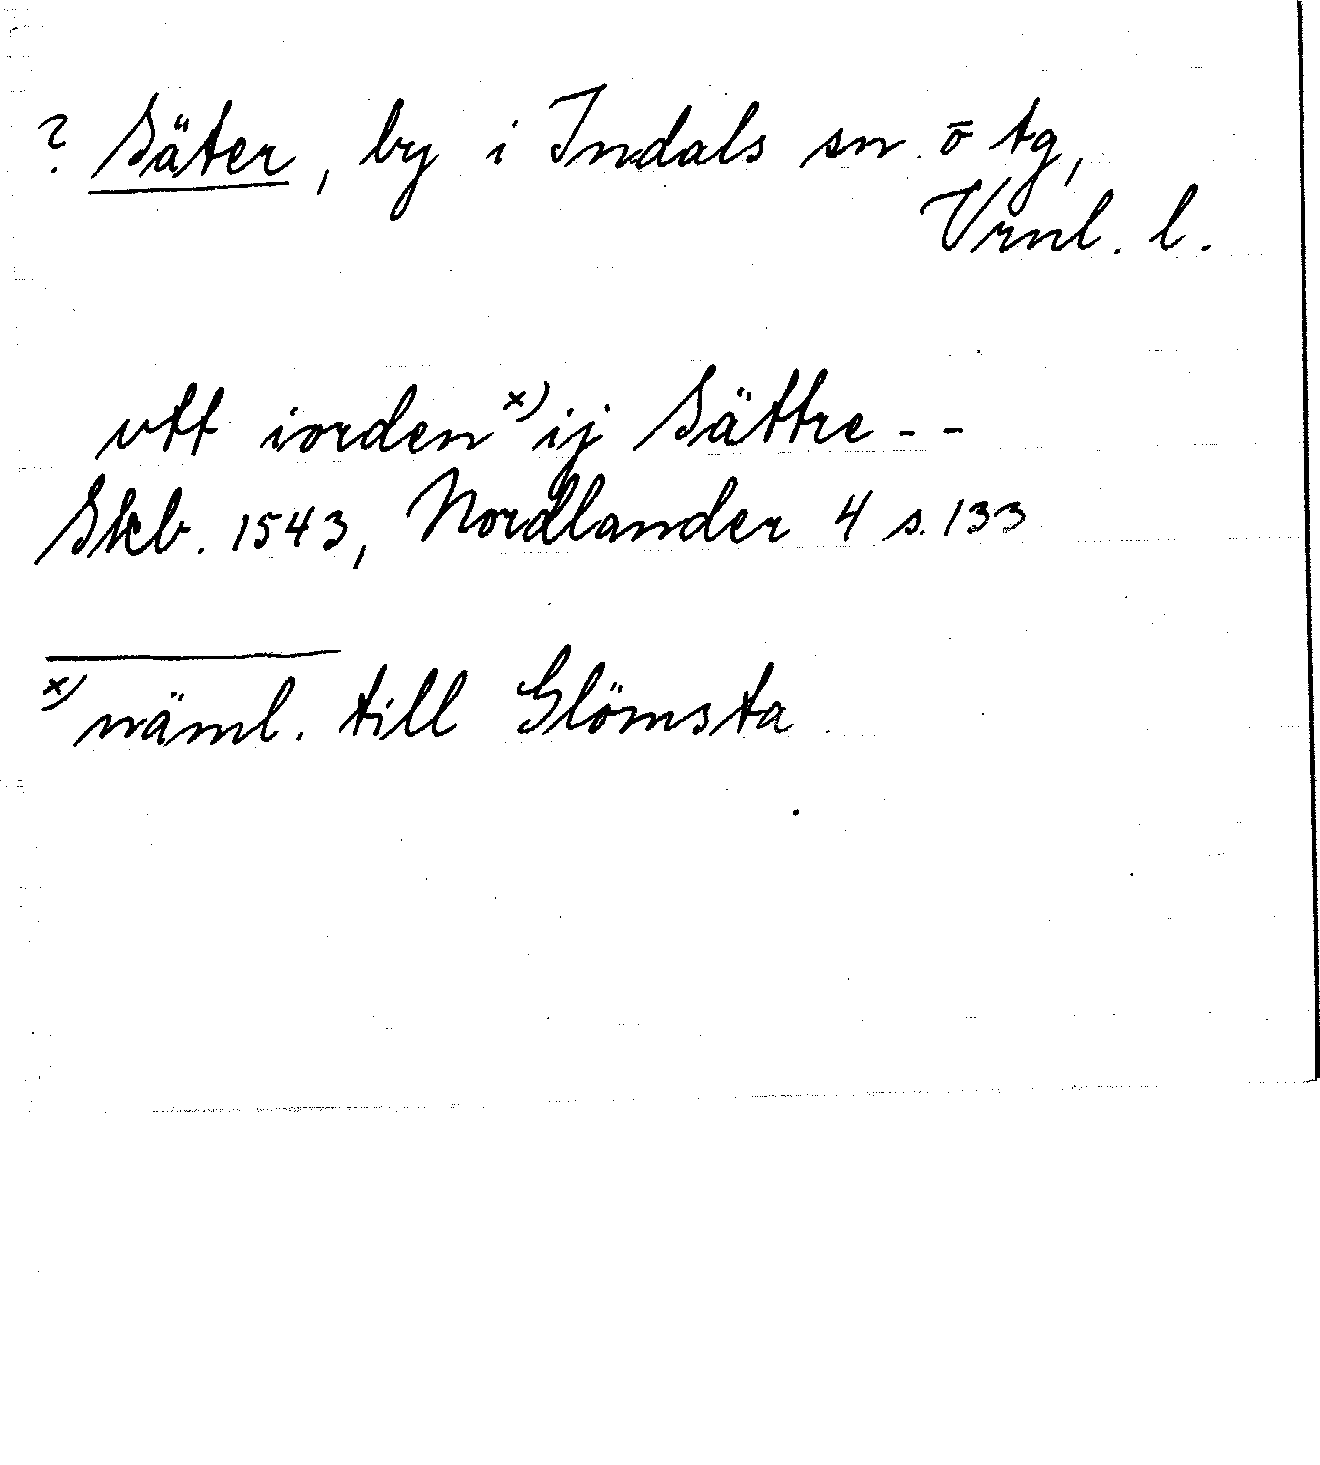 ? Säter, by i Indals sn ō tg,
Vrnl. l.
vtt iorden x) ij Sättre - -
Skb. 1543, Nordlander 4 s. 133
x) näml. till Glömsta